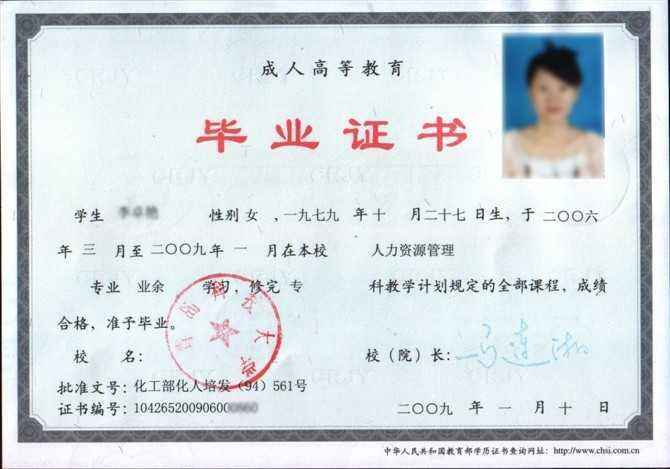 成人高等教育
毕业证书
学生 性别 女 ,一九七九 年 十 月二十七日生, 于 二〇〇六
年 三 月至 二〇〇九 年 一 月在本校 人力资源管理
专业 业余 学习, 修完 专 科教学计划规定的全部课程, 成绩
合格, 准予毕业。
青岛科技大学
校 名: 校 (院) 长: 马连湘
批准文号: 化工部化人培发 (94) 561号
证书编号: 10426520090600 二〇〇九 年 一 月 十 日
中华人民共和国教育部学历证书查询网址: http://www.chsi.com.cn